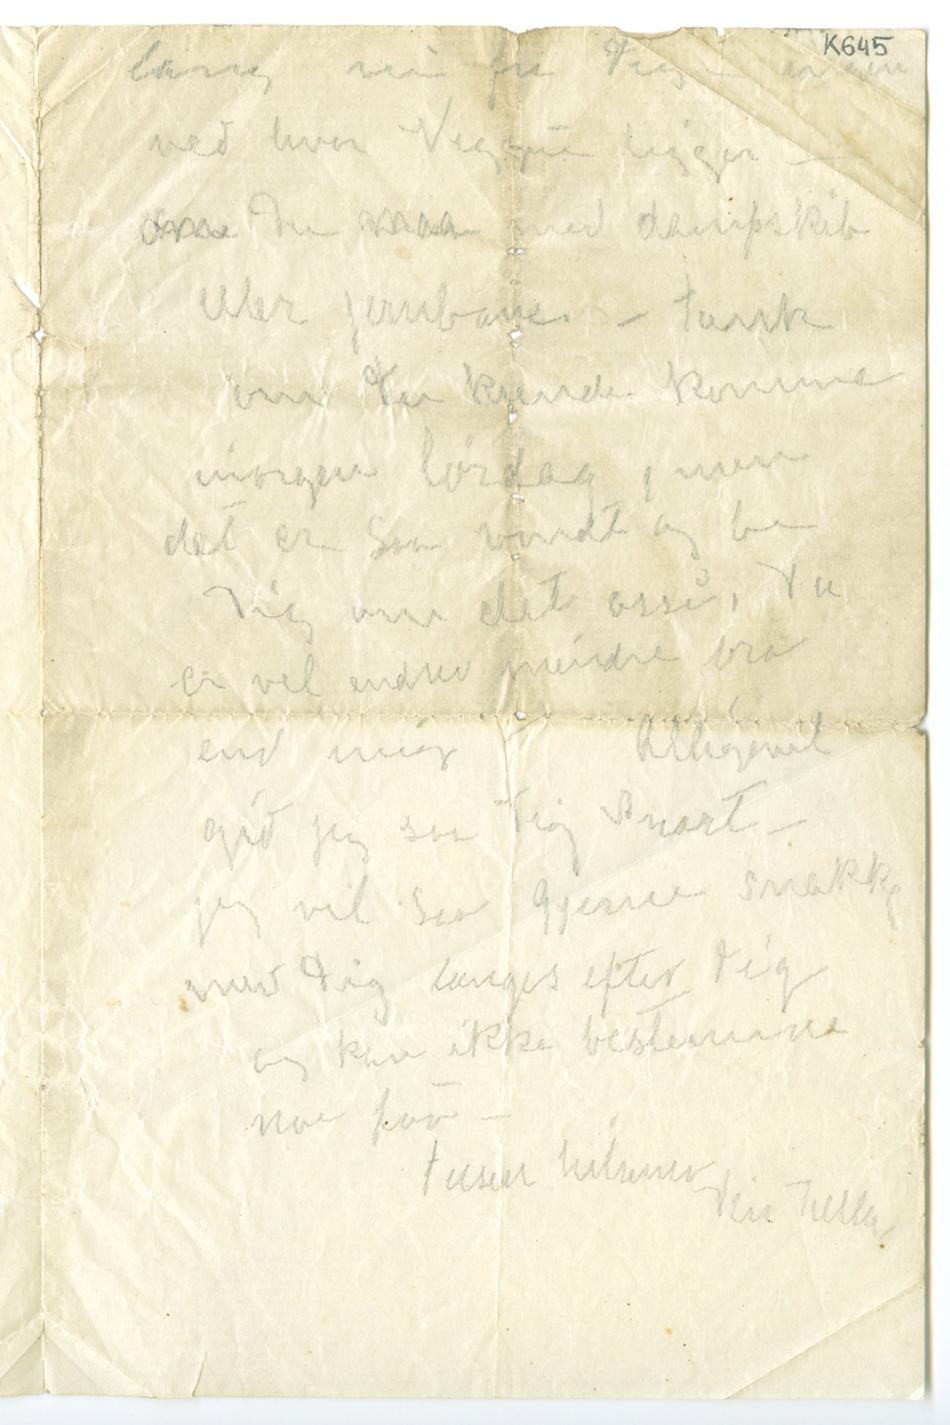 K645
lang vei fra Dig ingen
ved hvor Veggen ligger –
Du maa med dampskib
eller jernbane. – tænk
om Du kunde komme
imorgen lørdag, men
det er saa vondt og be
Dig om det osså, Du
er vel endnu mindre bra
end mig Alligevel
gid jeg saa Dig snart –
jeg vil saa gjerne snakke
med Dig længes efter Dig
og kan ikke bestemme
noe paa –
tusen hilsener
Din Tulla